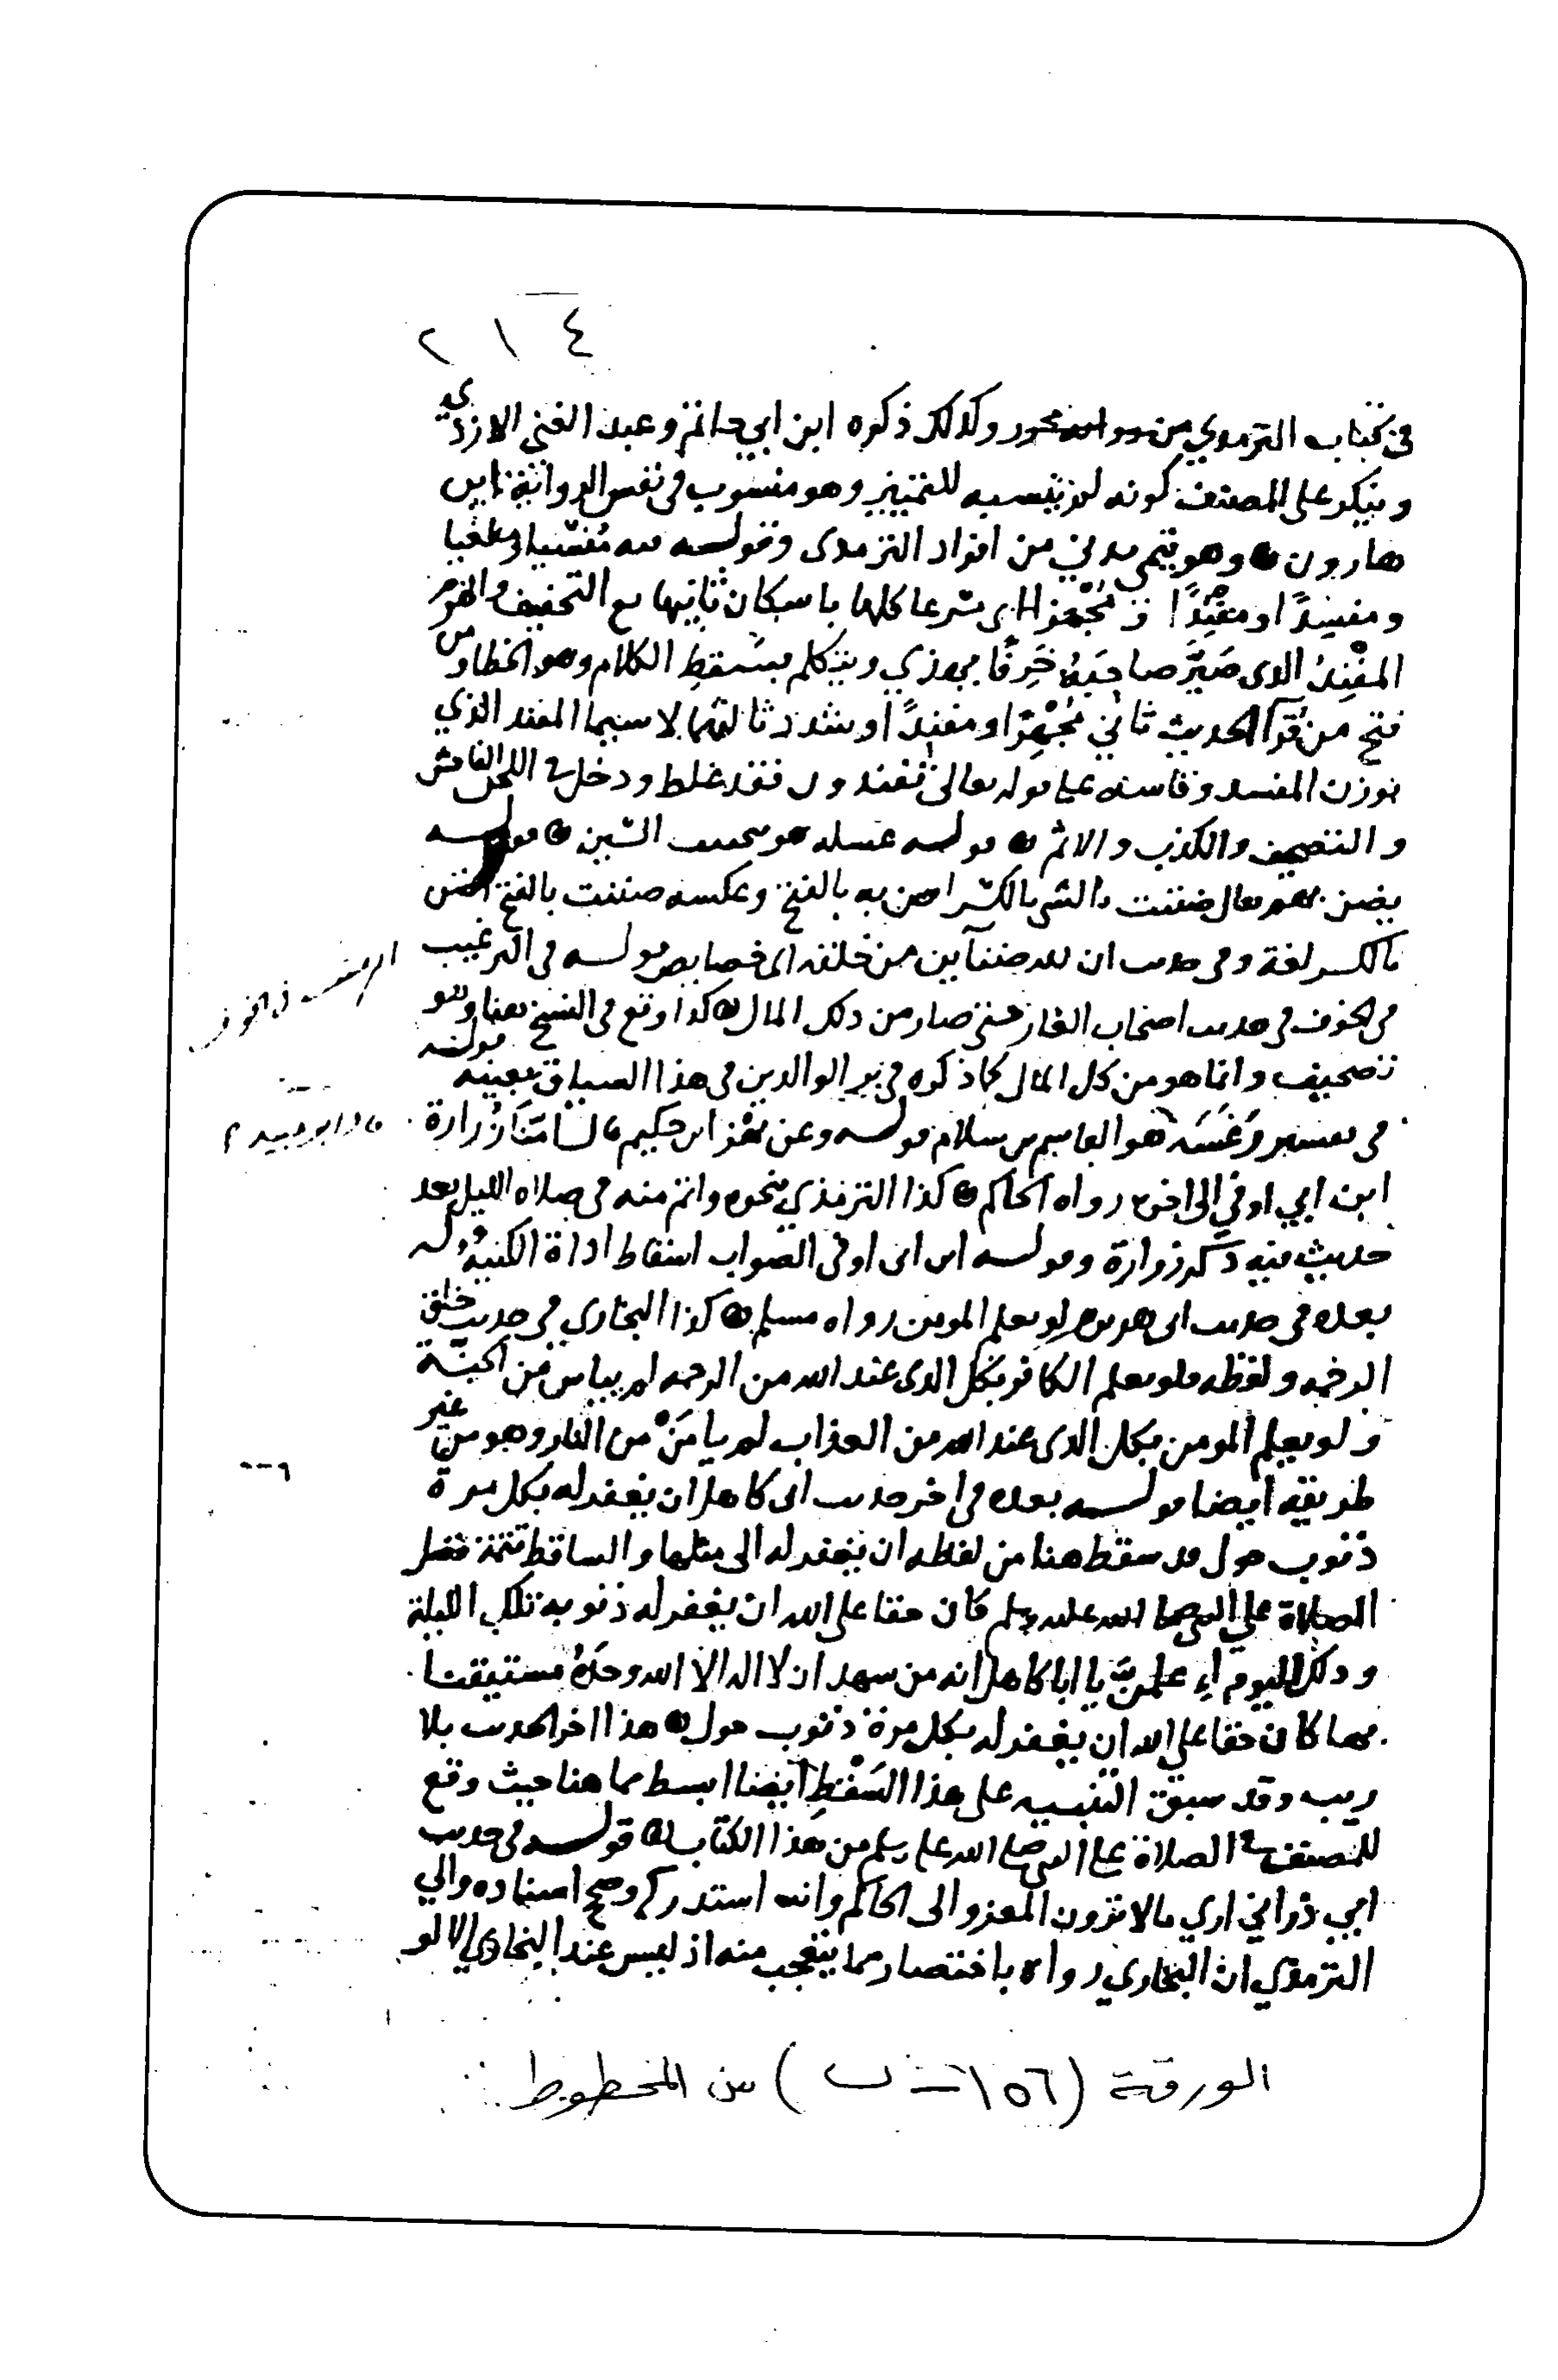 ٢١٤
في كتاب الترمذي من وكذلك ذكره ابن ابي حاتم وعبد الغني الازدي
وينكر على المصنف كونه لم ينسبه للتمييز وهو منسوب في نفس الرواية بابن
هارون وهو تيمي مدني من افراد الترمذي وقوله منسيا او مطغيا
ومفسدا او مفندا مجهزا اي مسرعا كلها باسكان ثانيها مع التخفيف والهرم
المفند الذي صير صاحبه خرفا يهذي ويتكلم بسقط الكلام وهو الخطا ومن
فتح من قرا الحديث ثاني مجهزا او مفندا او شدد ثالثهما لا سيما المفند الذي
بوزن المفسد وقاسه على قوله تعالى تفندون فقد غلط ودخل في اللحن الفاحش
والتصحيف والكذب والاثم قوله عسله هو بتخفيف السين قوله
يضن يقال ضننت بالشي بالكسر اضن به بالفتح وعكسه ضننت بالفتح اضن
بالكسر لغة وفي حديث ان لله ضنآين من خلقه اي خصايص قوله في الترغيب
في الخوف في حديث اصحاب الغار حتى صار من ذلك المال كذا وقع في النسخ هنا وهو
تصحيف وانما هو من كل المال كما ذكره في بر الوالدين في هذا السياق بعينه قوله
في تفسير وغسه هو القاسم بن سلام قوله وعن بهز ابن حكيم قال امنا زرارة
ابن ابي اوفى الى اخره رواه الحاكم كذا الترمذي بنحوه واتم منه في صلاة الليل بعد
حديث فيه ذكر زرارة وقوله ابن ابي اوفى الصواب اسقاط اداة الكنية قوله
بعده في حديث ابي هريرة لو يعلم المومن رواه مسلم كذا البخاري في حديث خلق
الرحمة ولفظه فلو يعلم الكافر بكل الذي عند الله من الرحمة لم يياس من الجنة
ولو يعلم المومن بكل الذي عند الله من العذاب لم يامن من النار وهو من غير
طريقه ايضا قوله بعده في اخر حديث ابي كاهل ان يغفر له بكل مرة
ذنوب حول قد سقط هنا من لفظه ان يغفر له الى مثلها والساقط تتمة فضل
الصلاة على النبي صلى الله عليه وسلم كان حقا على الله ان يغفر له ذنوبه تلك الليلة
وذلك اليوم اعلمن يا ابا كاهل انه من شهد ان لا اله الا الله وحده مستيقنا
بها كان حقا على الله ان يغفر له بكل مرة ذنوب حول هذا اخر الحديث بلا
ريب وقد سبق التنبيه على هذا السقط ايضا ابسط مما هنا حيث وقع
للمصنف في الصلاة على النبي صلى الله عليه وسلم من هذا الكتاب قوله في حديث
ابي ذر اني اري ما لا ترون المعزو الى الحاكم وانه استدركه وصحح اسناده والي
الترمذي ان البخاري رواه باختصار مما يتعجب منه اذ ليس عند البخاري الا لو
الورقة (١٥٦ - ب) من المخطوط